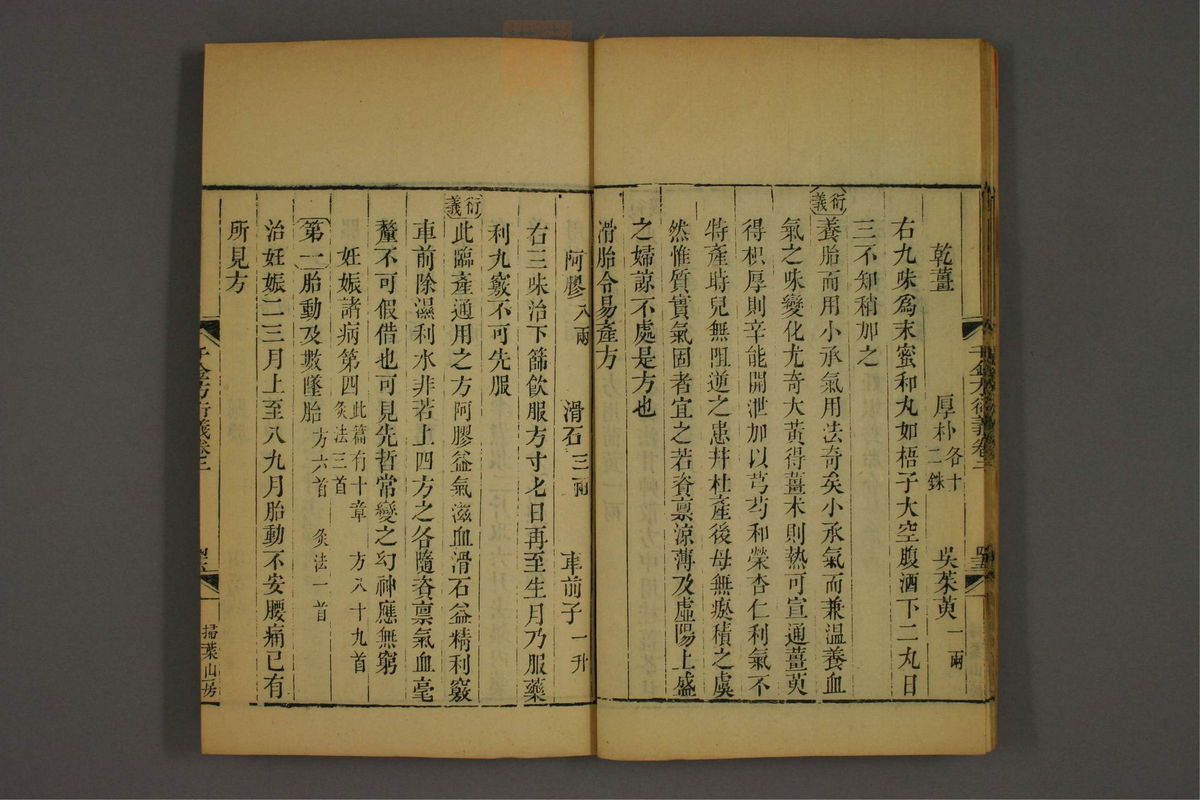 乾薑　厚朴各十二銖　吳茱萸一兩
右九味為末蜜和丸如梧子大空腹酒下二丸日
三不知稍加之
衍義養胎而用小承氣用法奇矣小承氣而兼溫養血
氣之味變化尤奇大黃得薑朮則熱可宣通薑萸
得枳厚則辛能開泄加以芎芍和榮杏仁利氣不
特產時兒無阻逆之患幷杜產後母無瘀積之虞
然惟質實氣固者宜之若資禀涼薄及虛陽上盛
之婦諒不處是方也
滑胎令易產方
阿膠八兩　滑石三兩　車前子一升
右三味治下篩飲服方寸匕日再至生月乃服藥
利九竅不可先服
衍義此臨產通用之方阿膠益氣滋血滑石益精利竅
車前除濕利水非若上四方之各隨資禀氣血毫
釐不可假借也可見先哲常變之幻神應無窮
妊娠諸病第四此篇有十章　方八十九首灸法三首
第一胎動及數墮胎方六首　灸法一首
治妊娠二三月上至八九月胎動不安腰痛已有
所見方
千金方衍義卷二
掃葉山房